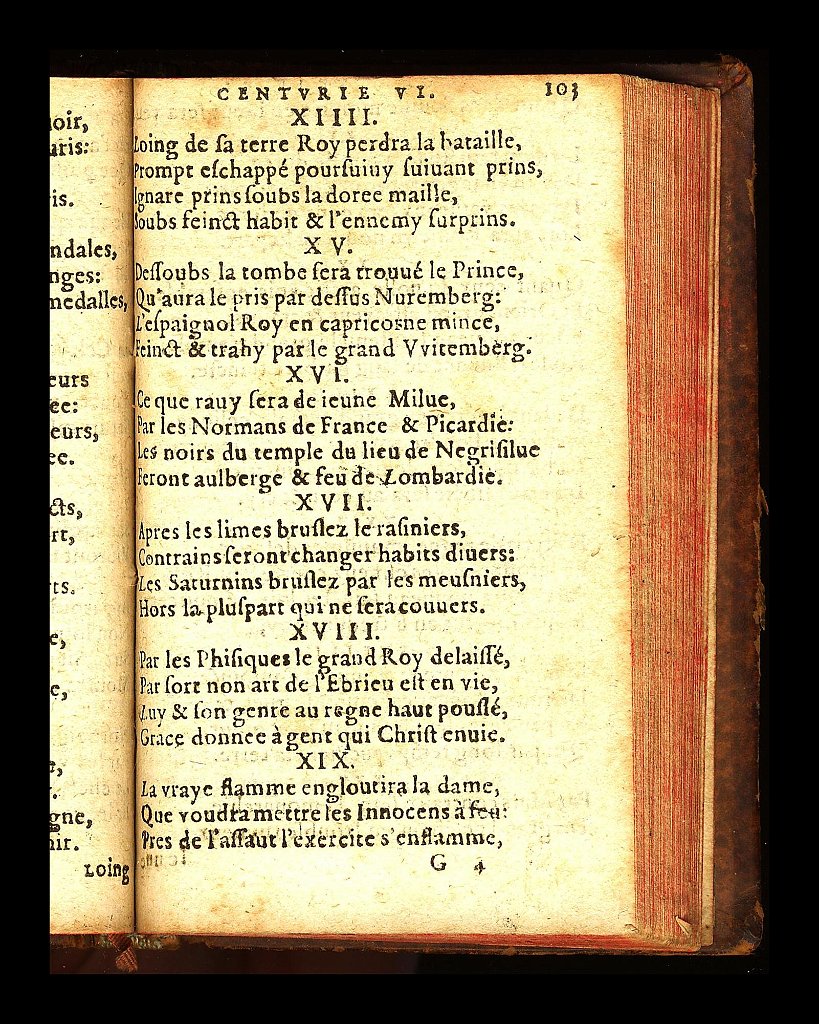 oir,
uris:
is.
ndales,
nges:
medalles,
eurs
ee:
eurs,
ee.
cts,
rt,
rts.
e,
e,
e,
r.
gne,
nir.
Loing
CENTVRIE VI. 103
XIIII.
Loing de ſa terre Roy perdra la bataille,
Prompt eſchappé pourſuiuy ſuiuant prins,
Ignare prins ſoubs la doree maille,
Soubs feinct habit & l'ennemy ſurprins.
XV.
Deſſoubs la tombe ſera trouué le Prince,
Qu'aura le pris par deſſus Nuremberg:
L'eſpaignol Roy en capricorne mince,
Feinct & trahy par le grand Vvitemberg.
XVI.
Ce que rauy ſera de ieune Milue,
Par les Normans de France & Picardie:
Les noirs du temple du lieu de Negriſilue
Feront aulberge & feu de Lombardie.
XVII.
Apres les limes bruſlez le raſiniers,
Contrains ſeront changer habits diuers:
Les Saturnins bruſlez par les meuſniers,
Hors la pluſpart qui ne ſera couuers.
XVIII.
Par les Phiſiques le grand Roy delaiſſé,
Par ſort non art de l'Ebrieu eſt en vie,
Luy & ſon genre au regne haut pouſſé,
Grace donnee à gent qui Chriſt enuie.
XIX.
La vraye flamme engloutira la dame,
Que voudra mettre les Innocens à feu:
Pres de l'aſſaut l'exercite s'enflamme,
G 4